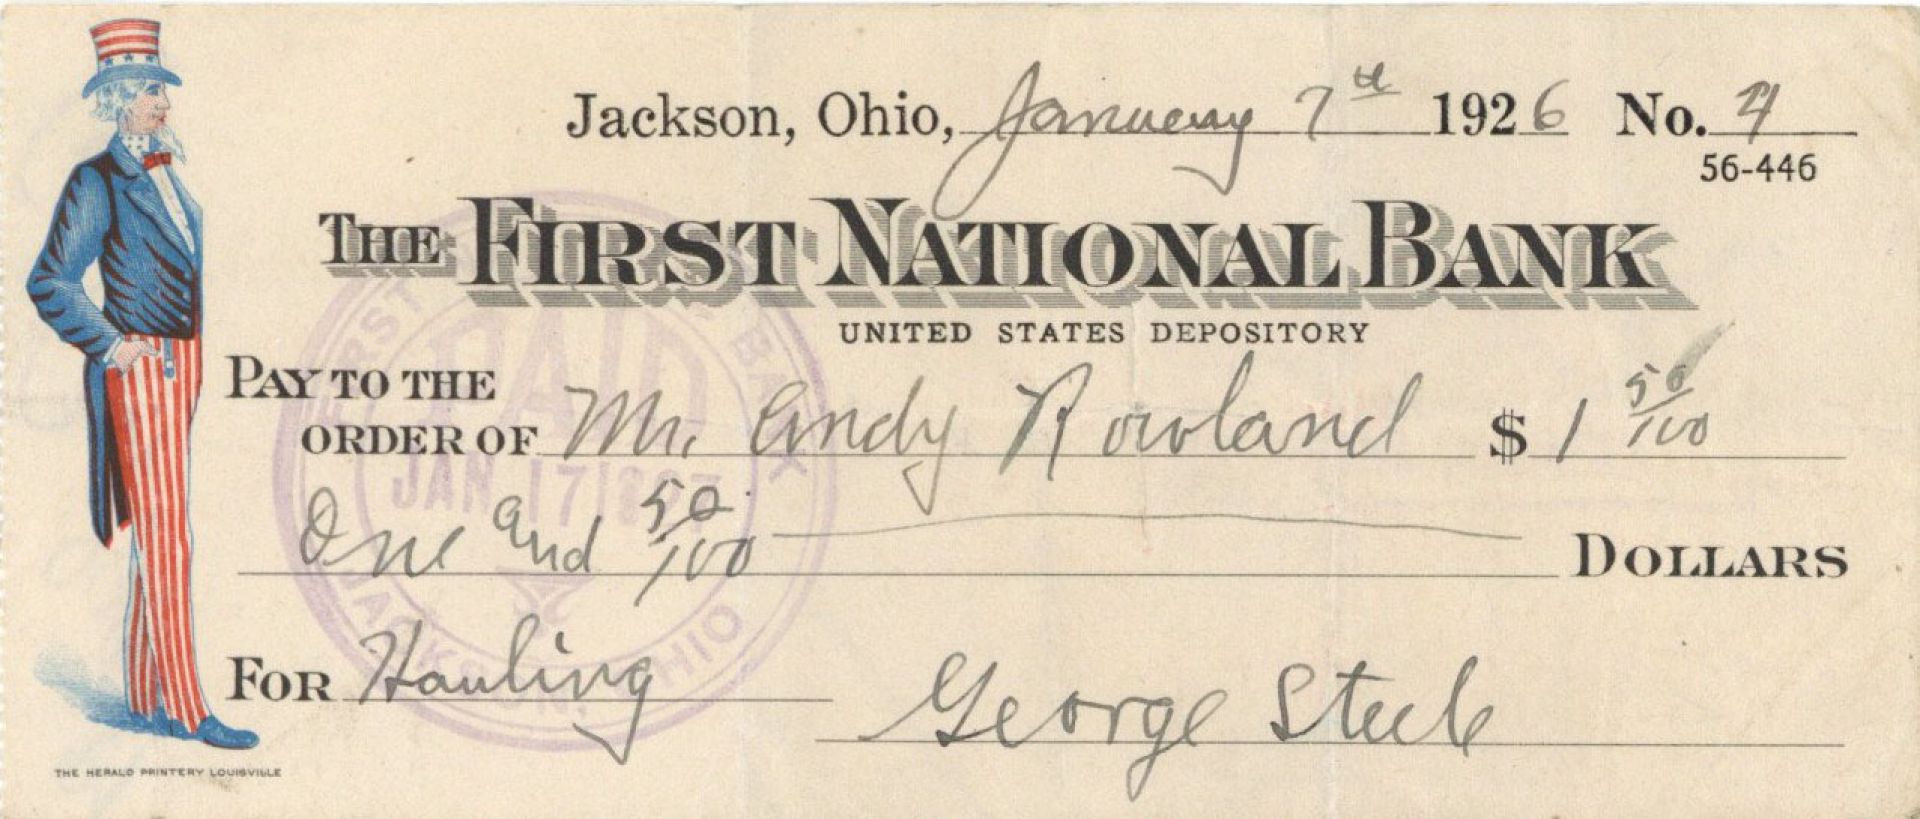 Jackson, Ohio, January 7th 1926 No. 4
56-446
THE FIRST NATIONAL BANK
UNITED STATES DEPOSITORY
PAY TO THE
ORDER OF Mr. Andy Rowland $ 1 50/100
One and 50/100 DOLLARS
FOR Hauling
George Steele
THE HERALD PRINTERY LOUISVILLE
FIRST BANK
PAID
JAN 17
JACKSON, OHIO